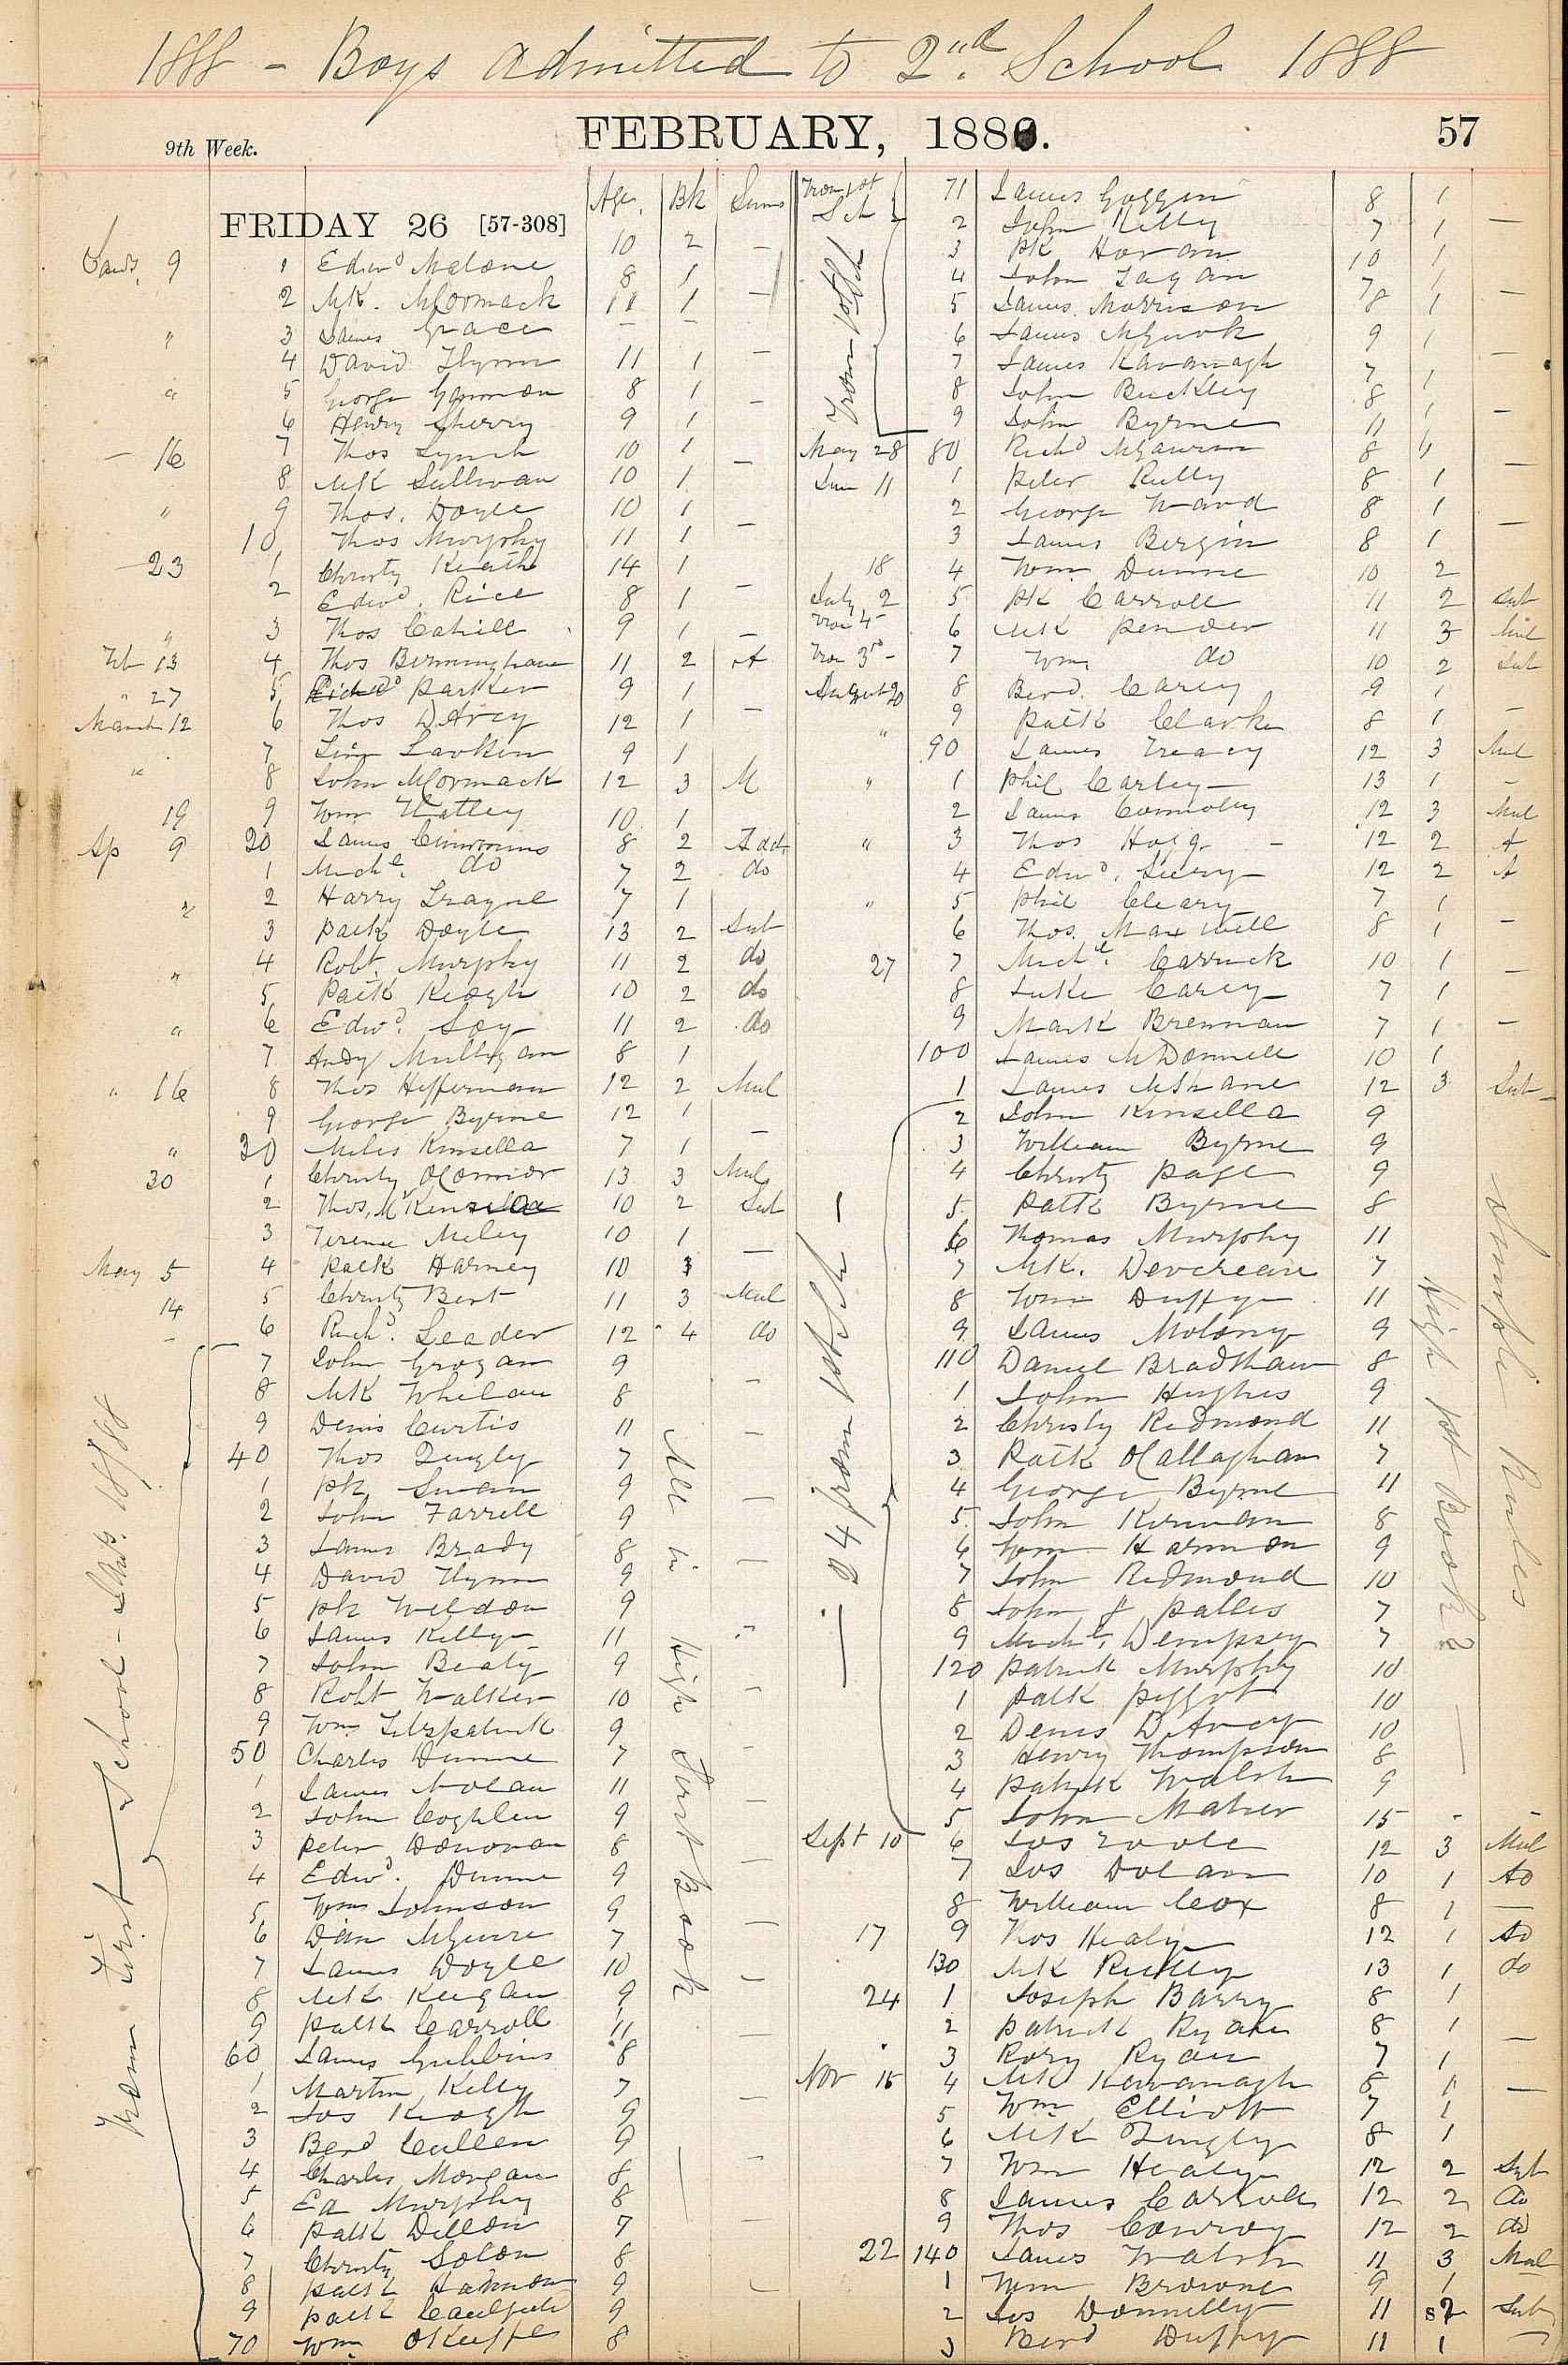 1888 - Boys admitted to 2nd. School 1888
9th Week.
FEBRUARY, 1888.
57
FRIDAY 26 [57-308]
Age. Bk Sums
9 1 Edwd Malone 10 2 —
2 Mk. McCormack 8 1
" 3 James Grace 11 1 —
4 David Flynn — —
" 5 George Gammon 11 1 —
6 Henry Sherry 8 1
— 16 7 Thos Lynch 9 1 —
8 Mk Sullivan 10 1
" 9 Thos. Doyle 10 1 —
10 Thos Murphy 10 1
23 1 Christy Keath 11 1 —
2 Edwd. Rice 14 1
" 3 Thos Cahill 8 1 —
Feb 13 4 Thos Birmingham 9 1 —
" 27 5 Richd Parker 11 2 A
March 12 6 Thos DArcy 9 1
7 Larkin 12 1 —
" 8 John McCormack 9 1
19 9 Wm 12 3 M
Ap 9 20 James Cummins 10 1
1 Michl. do 8 2 Add
" 2 Harry 7 2 do
3 Patk Doyle 7 1
4 Robt. Murphy 13 2 Sub
" 5 Patk Keogh 11 2 do
" 6 Edwd. 10 2 do
7 Andy Mulligan 11 2 do
" 16 8 Thos Heffernan 8 1
9 George Byrne 12 2 Mul
" 30 Miles Kinsella 12 1
30 1 Christy OConnor 7 1 —
2 Thos. McKen 13 3 Mul
3 Terence Meley 10 2 Sub
May 5 4 Patk Harney 10 1 —
14 5 Christy Bert 10 3
— 6 Richd. Leader 11 3 Mul
12 4 do
7 John Grogan 9
8 Mk Whelan 8 —
9 Denis Curtis 11
40 Thos 7 —
1 Pk Swan 9
2 John Farrell 9 —
3 James Brady 8
4 David Flynn 9 —
5 Pk Weldon 9
6 James Kelly 11 "
7 John Bealy 9
8 Robt Walker 10 —
9 Wm Fitzpatrick 9
50 Charles Dunne 7 —
1 James Nolan 11
2 John Coghlen 9 —
3 Peter Donovan 8
4 Edwd. Dunne 9 —
5 Wm Johnson 9
6 McGuire 7 —
7 James Doyle 10
8 Mk Keegan 9 —
9 Patk Carroll 11
60 James Gubbins 8 —
1 Martin Kelly 7
2 Jos Keogh 9 —
3 Berd Cullen 9
4 Charles Morgan 8 —
5 Ed Murphy 8
6 Patk Dillon 7 —
7 Christy Solon 8
8 Patk Hannon 9
9 Patk Caulfield 9
70 Wm. OKeeffe 8
From First School - 18/88
All in High First Book
From 1st Sch
From 1st Sch
71 James Goggin 8 1
2 John Kelly 7 1 —
3 Pk Horan 10 1
4 John Fagan 7 1
5 James Morrison 8 1 —
6 James McGuirk 9 1
7 James Kavanagh 7 1 —
8 John Buckley 8 1
9 John Byrne 11 1 —
May 28 80 Richd McGaurin 8 1
Jun 11 1 Peter Reilly 8 1 —
2 George Ward 8 1
3 James Bergin 8 1 —
18 4 Wm Dunne 10 2
July 2 5 Pk Carroll 11 2 Sub
from 4 6 Mk Pender 11 3 Mul
from 3rd - 7 Wm do 10 2 Sub
August 20 8 Berd. Carey 9 1
" 9 Patk Clarke 8 1 —
90 James Treacy 12 3 Mul
" 1 Phil Carley 13 1 —
2 James Connolly 12 3 Mul
" 3 Thos Hogg 12 2 A
4 Edwd. 12 2 A
" 5 Phil Cleary 7 1
6 Thos. Maxwell 8 1 —
27 7 Michl. Carrick 10 1
8 Luke Carey 7 1 —
9 Mark Brennan 7 1 —
100 James McDonnell 10 1
1 James McShane 12 3 Sub
2 John Kinsella 9
3 William Byrne 9
4 Christy Page 9
5 Patk Byrne 8
6 Thomas Murphy 11
7 Mk. Devereau 7
8 Wm Duffy 11
9 James Molony 9
110 Daniel Bradshaw 8
1 John Hughes 9
2 Christy Redmond 11
3 Patk OCallaghan 7
4 George Byrne 11
5 John Kirwan 8
6 Wm Harmon 9
7 John Redmond 10
8 John J Palles 7
9 Michl. Dempsey 7
120 Patrick Murphy 10
1 Patk Piggot 10
2 Denis DArcy 10
3 Henry Thompson 8
4 Patrick Walsh 9
5 John Maher 15 - -
— : 24 from 1st Sch —
High 1st Book?
Simple Rules
Sept 10 6 Jos Toole 12 3 Mul
7 Jos Dolan 10 1 Ad
8 William Cox 8 1 —
17 9 Thos Healy 12 1 Ad
130 Mk Reilly 13 1 do
24 1 Joseph Barry 8 1
2 Patrick Ryan 8 1 —
3 Rory Ryan 7 1
Nov 15 4 Mk Kavanagh 8 1 —
5 Wm Elliott 7 1
6 Mk 8 1
7 Wm Healy 12 2 Sub
8 James Carroll 12 2 do
9 Thos Conroy 12 2 do
22 140 James Walsh 11 3 Mul
1 Wm Browne 9 1
2 Jos Donnelly 11 2 Sub
3 Berd Duffy 11 1 —